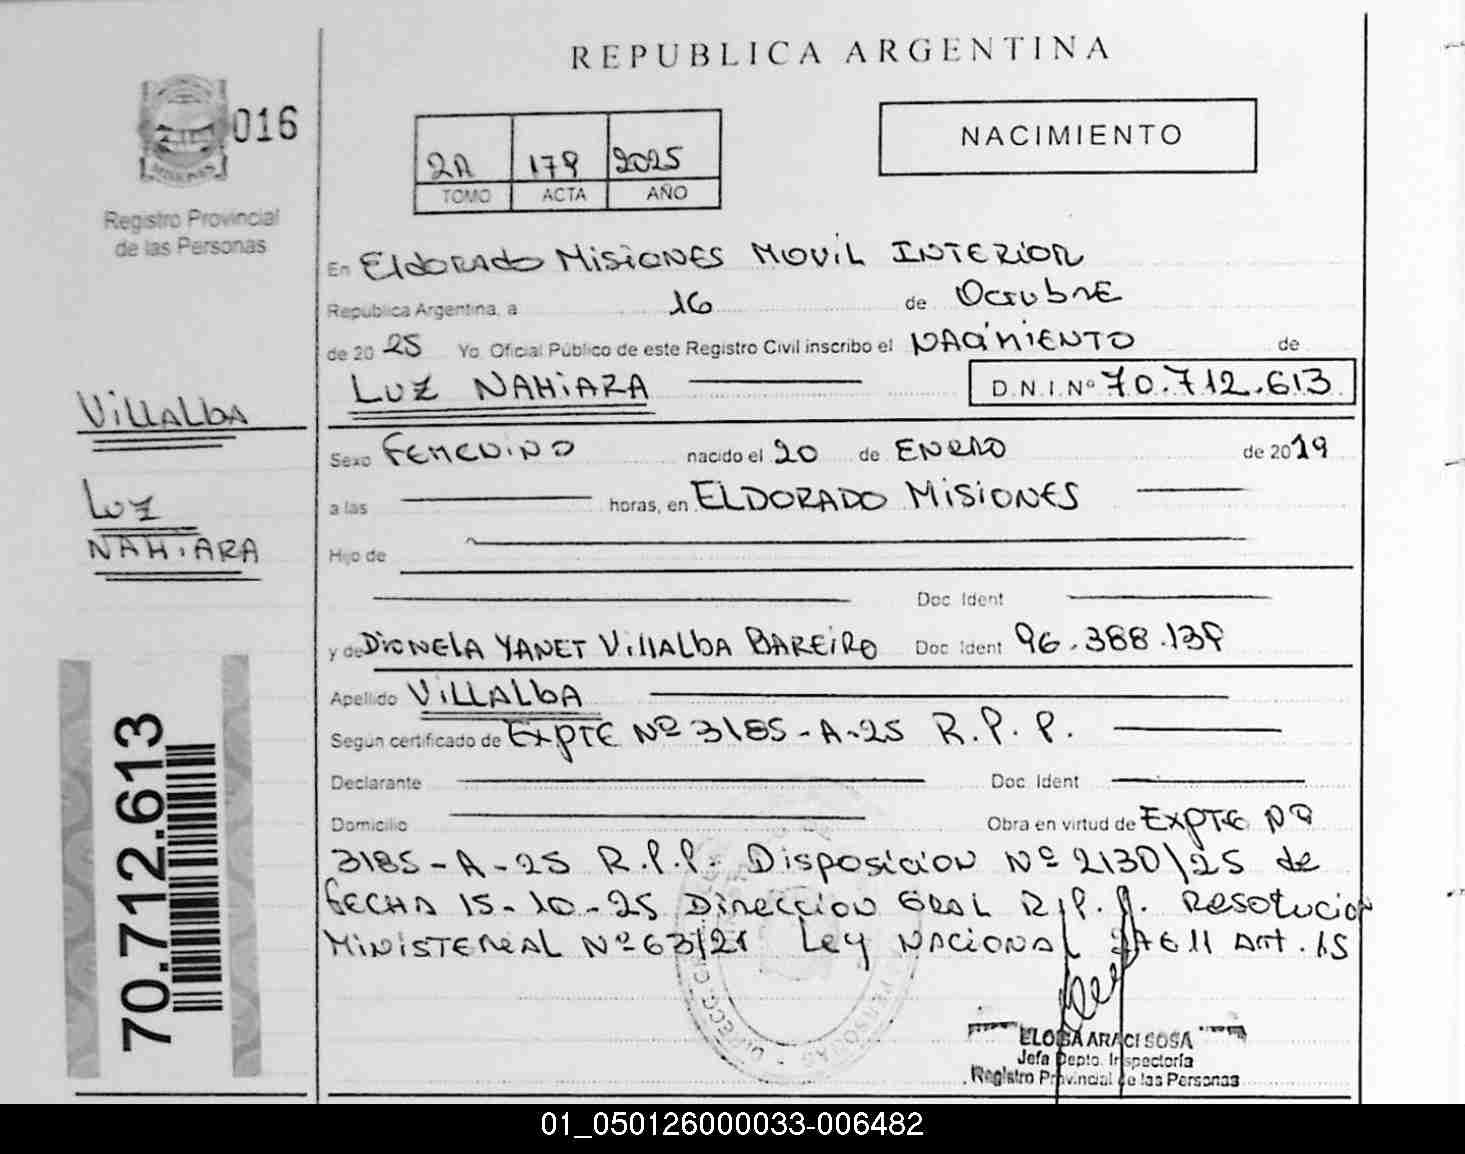 REPUBLICA ARGENTINA
016
MISIONES
Registro Provincial
de las Personas
NACIMIENTO
2A 179 2025
TOMO ACTA AÑO
En ElDORADO MISIONES MOVIL INTERIOR
Republica Argentina, a 16 de Octubre
de 2025 Yo Oficial Público de este Registro Civil inscribo el NACIMIENTO de
LUZ NAHIARA D.N.I.Nº 70.712.613
VillAlbA
LUZ
NAHIARA
Sexo FEMENINO nacido el 20 de ENERO de 2019
a las horas, en ELDORADO MISIONES
Hijo de
Doc Ident
y de DIONELA YANET VillAlbA BAREIRO Doc Ident 96.388.139
Apellido VILLALBA
Según certificado de EXPTE Nº 3185-A-25 R.P.P.
Declarante Doc Ident
Domicilio Obra en virtud de EXPTE Nº
3185-A-25 R.P.P. Disposicion Nº 2130\25 de
FECHA 15-10-25 Direccion GRAL R.P.P. Resolucion
MINISTERIAL Nº 63/21 Ley NACIONAL 27611 Art. 15
70.712.613
ELOISA ARACI SOSA
Jefa Depto. Inspectoría
Registro Provincial de las Personas
01_050126000033-006482